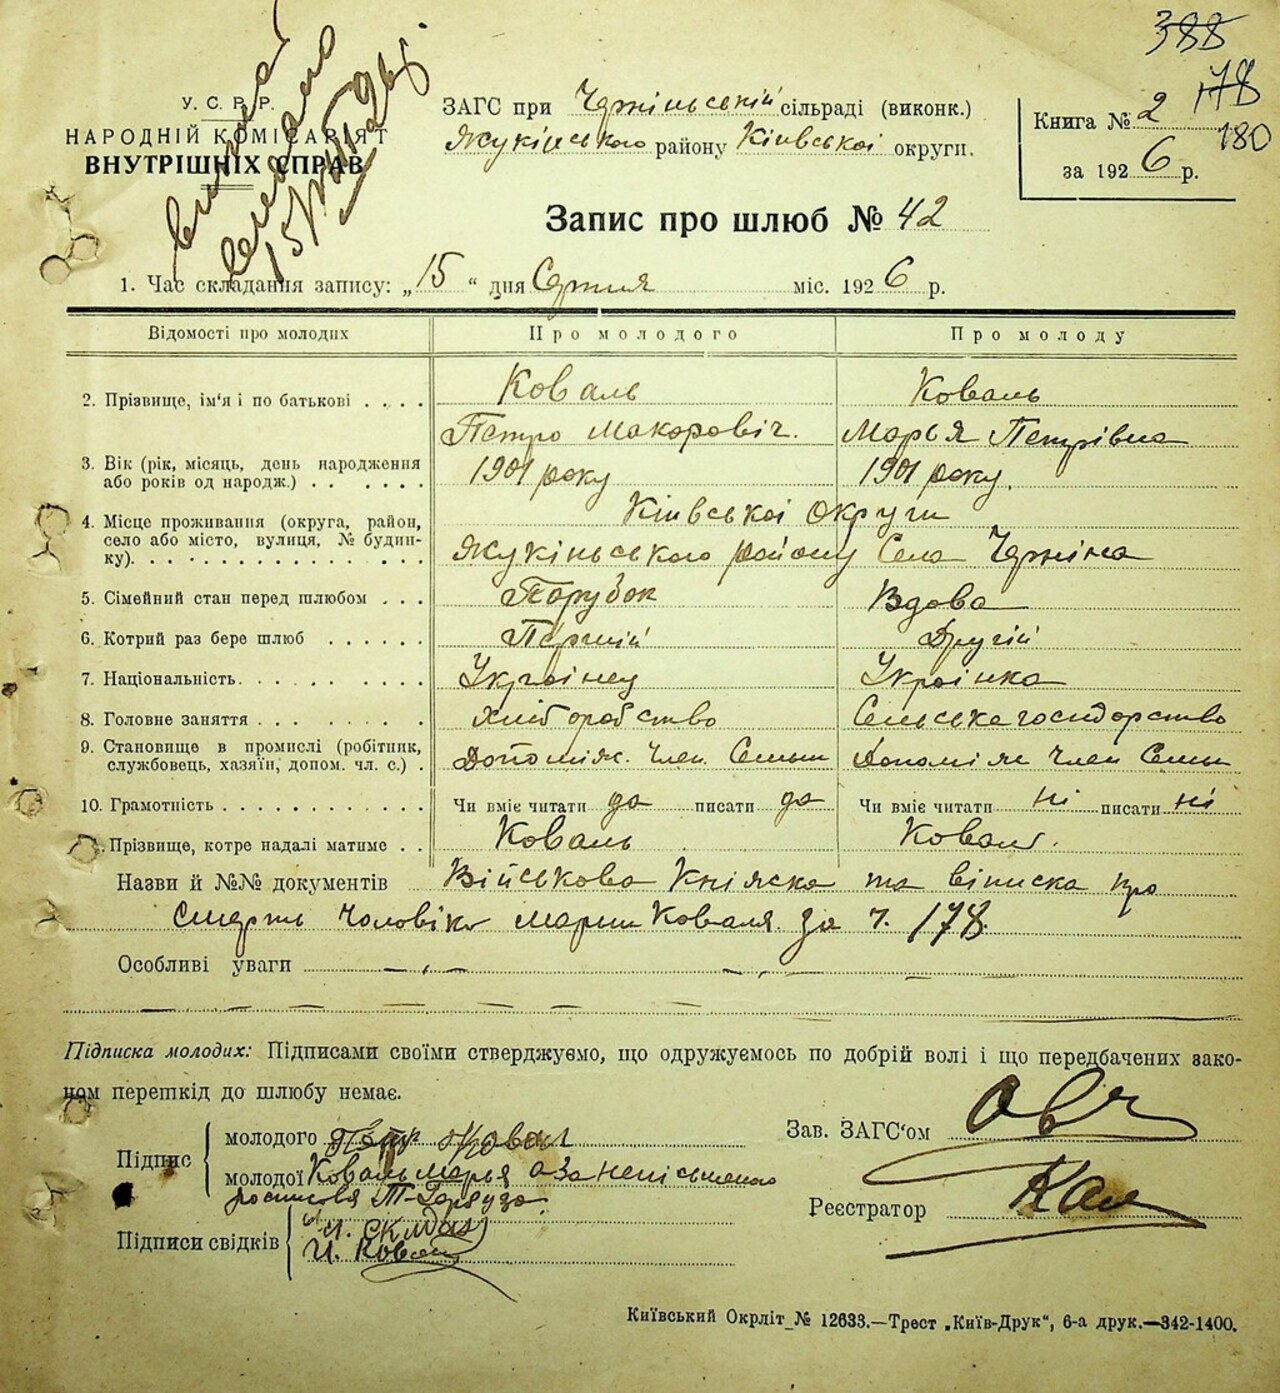 388
178
180
У. С. Р. Р.
НАРОДНІЙ КОМІСАРІЯТ
ВНУТРІШНІХ СПРАВ
ЗАГС при Чернінській сільраді (виконк.)
Жукінського району Кіівськоі округи.
Книга № 2
за 1926 р.
Запис про шлюб № 42
1. Час складання запису: „15“ дня Серпня міс. 1926 р.
Відомості про молодих Про молодого Про молоду
2. Прізвище, ім'я і по батькові . . . . Коваль Коваль
Петро Макаровіч. Марья Петрівна
3. Вік (рік, місяць, день народження
або років од народж.) . . . . . . . 1901 року 1901 року.
4. Місце проживання (округа, район,
село або місто, вулиця, № будин-
ку). . . . . . . . . . . . . . . .
Кіівськоі Округи
Жукіньського району Села Черніна
5. Сімейний стан перед шлюбом . . . Парубок Вдова
6. Котрий раз бере шлюб . . . . . . Першій Другій
7. Національність. . . . . . . . . . Украінец Украінка
8. Головне заняття . . . . . . . . . хліборобство Сельське господарство
9. Становище в промислі (робітник,
службовець, хазяїн, допом. чл. с.) . Допоміж. Член Семьи Допоміж Член Семьи
10. Грамотність . . . . . . . . . . . Чи вміє читати да писати да Чи вміє читати ні писати ні
Прізвище, котре надалі матиме . . Коваль Коваль.
Назви й №№ документів Військова Кніжка та віписка про
смерть Чоловіка Марьи Коваля за ч. 178.
Особливі уваги
Підписка молодих: Підписами своїми стверджуємо, що одружуємось по добрій волі і що передбачених зако-
ном перешкід до шлюбу немає.
Підпис
молодого Петр Коваль
молодої Коваль Марья а За неписьмено
Зав. ЗАГС'ом
Реєстратор
Підписи свідків
И. Коваль
Київський Окрліт № 12633.—Трест „Київ-Друк“, 6-а друк.—342-1400.